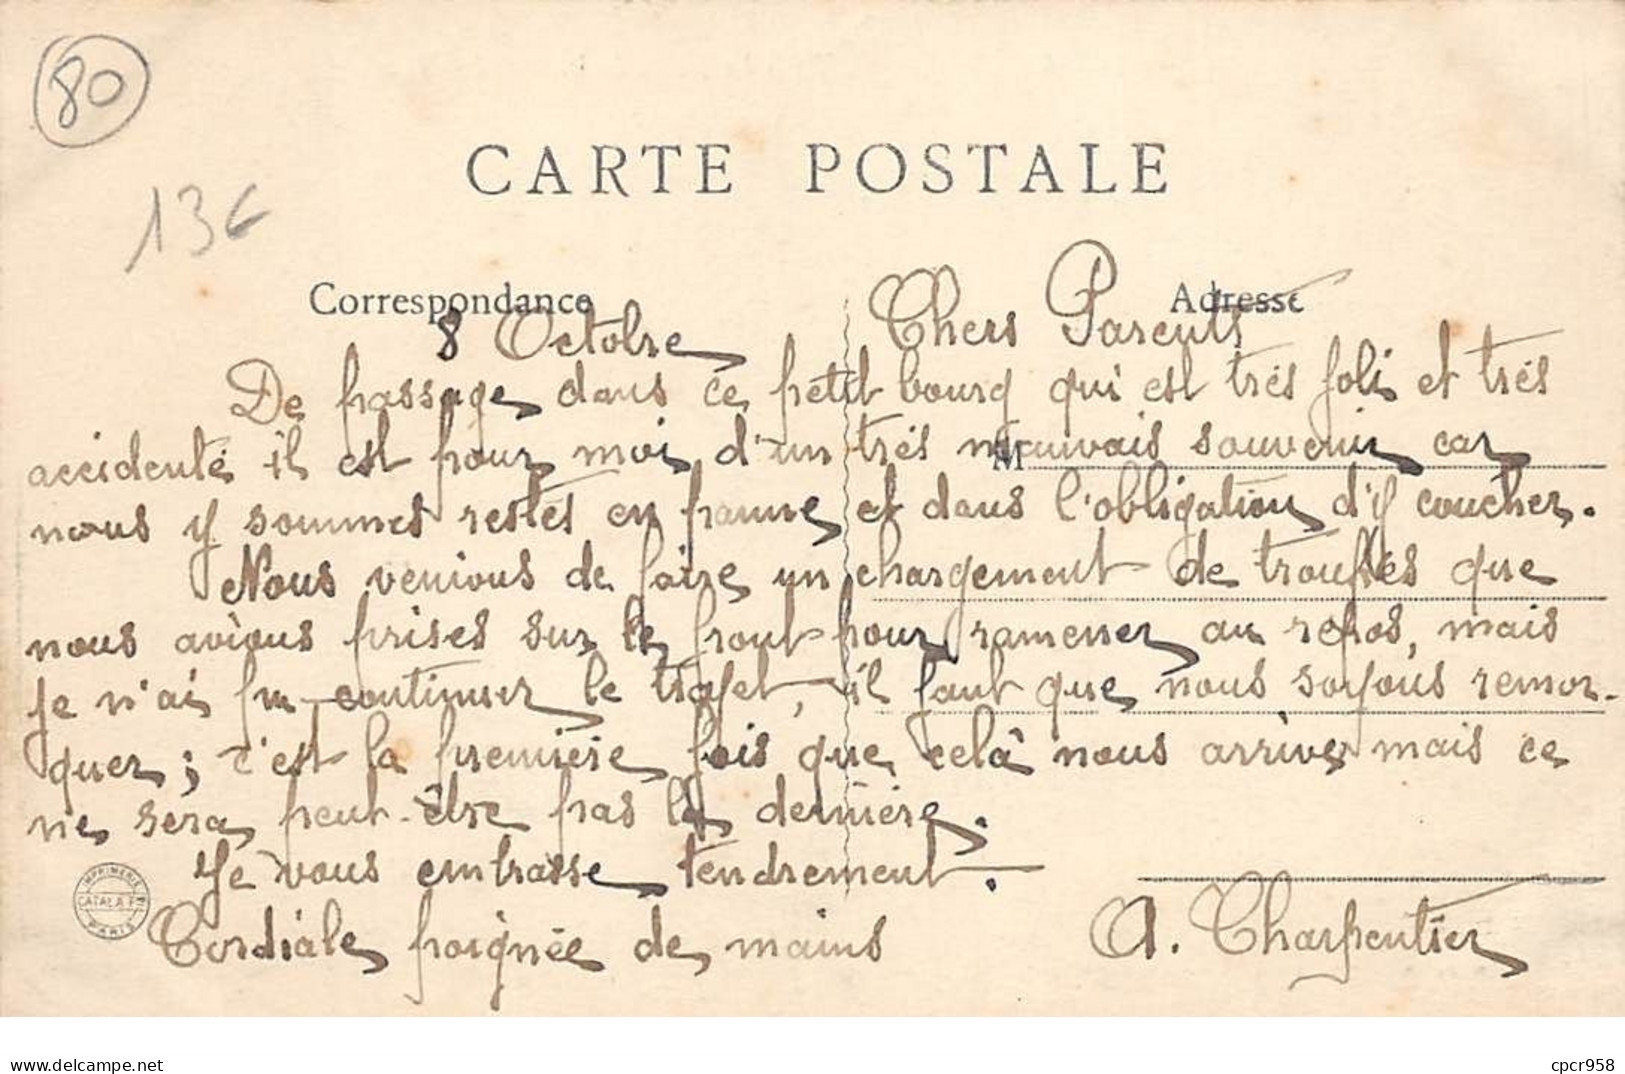 80
136
CARTE POSTALE
Correspondance
Adresse
8 Octobre Chers Parents
De passage dans ce petit bourg qui est trés joli et trés
accidenté il est pour moi d'un trés mauvais souvenir car
M
nous y sommes restés en panne et dans l'obligation d'y coucher.
Nous venions de faire un chargement de troupes que
nous avions prises sur le front pour ramener au repos, mais
je n'ai pu continuer le trajet, il faut que nous soyons remor-
quer; c'est la première fois que celà nous arrive mais ce
ne sera peut-être pas la dernière.
Je vous embrasse tendrement.
Cordiale poignée de mains A. Charpentier
IMPRIMERIE
CATALA Frs
PARIS
https://www.delcampe.net
cpcr958